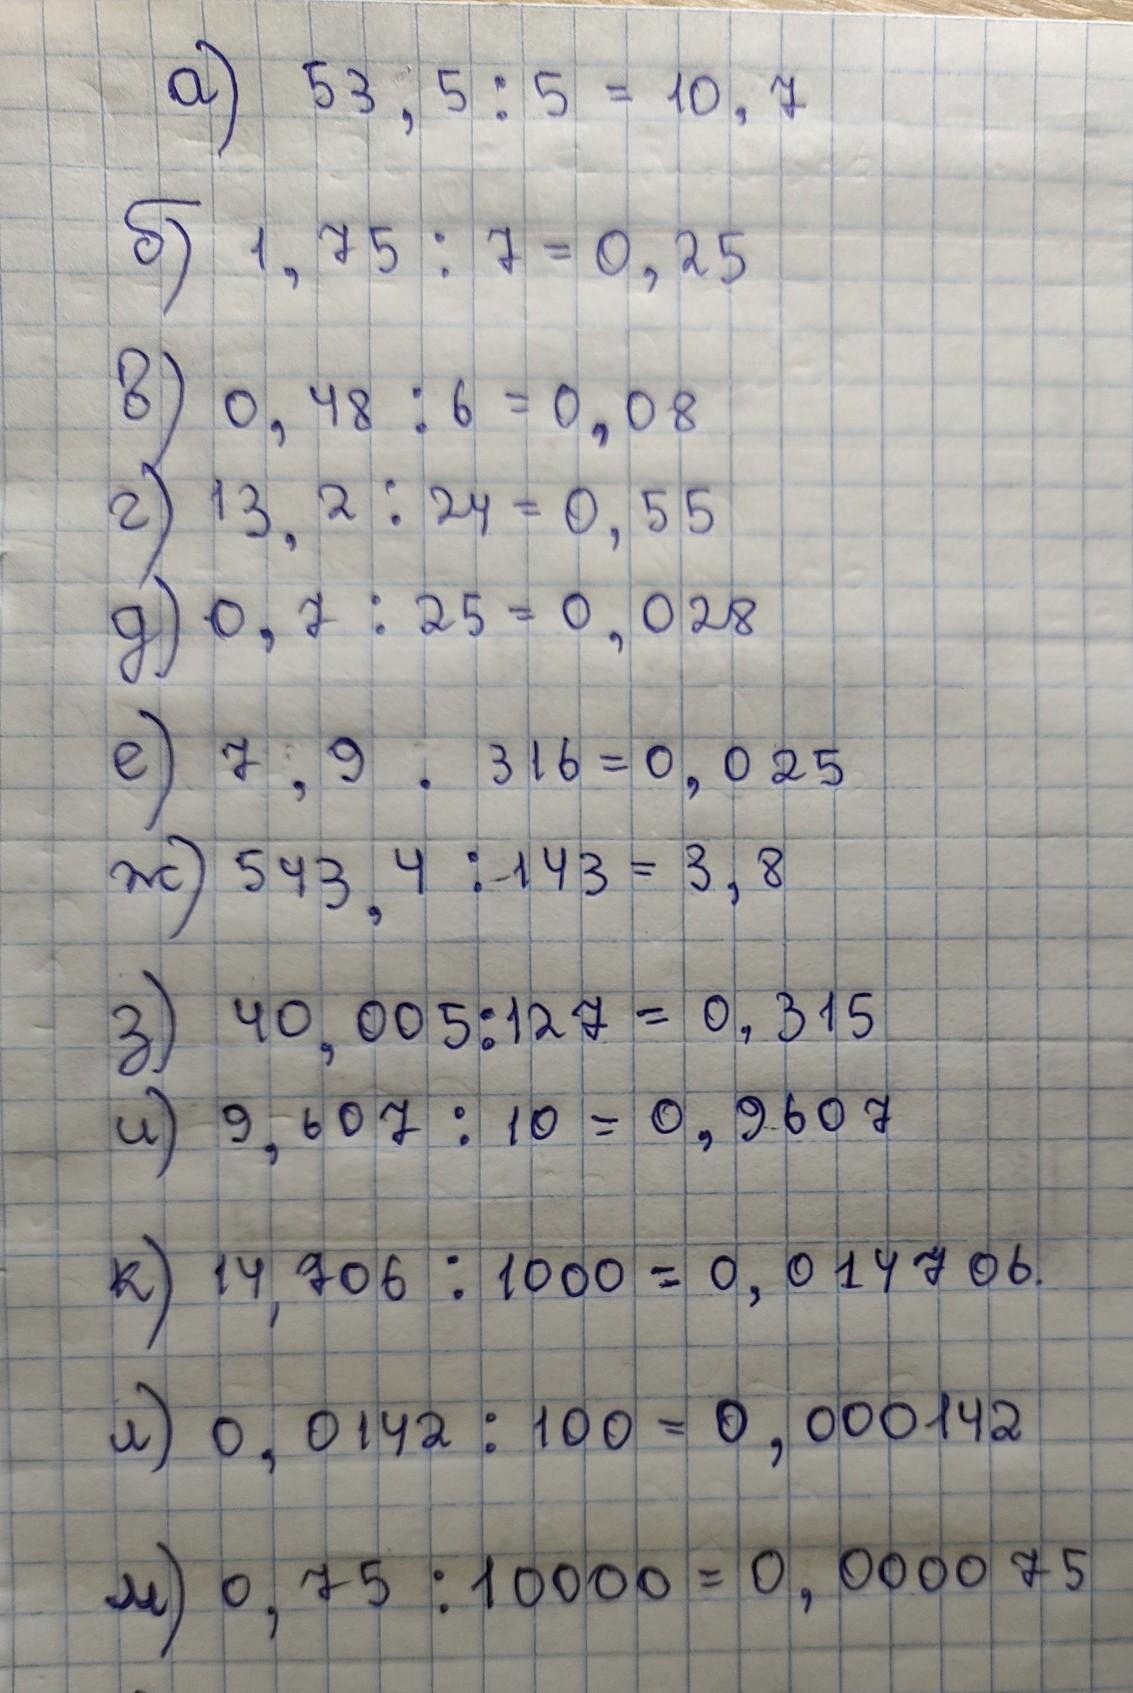 а) 53,5:5=10,7
б) 1,75:7=0,25
в) 0,48:6=0,08
г) 13,2:24=0,55
д) 0,7:25=0,028
е) 7,9.316=0,025
ж) 543,4:143=3,8
з) 40,005:127=0,315
и) 9,607:10=0,9607
к) 14,706:1000=0,014706.
л) 0,0142:100=0,000142
м) 0,75:10000=0,000075